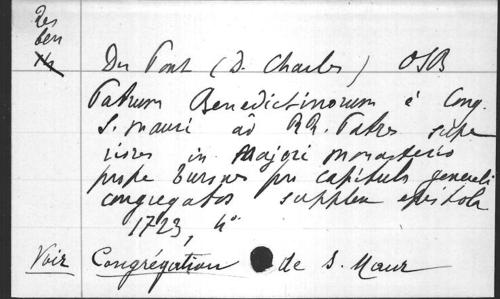 Res
ben
Du Pont (D. Charles) OSB
Patrum Benedictinorum è Cong.
S. Mauri ad RR. Patres supe
riores in Majori monasterio
prope Turones pro capitulo generali
congregatos supplex epistola
1723, 4°
Voir Congrégation de S. Maur